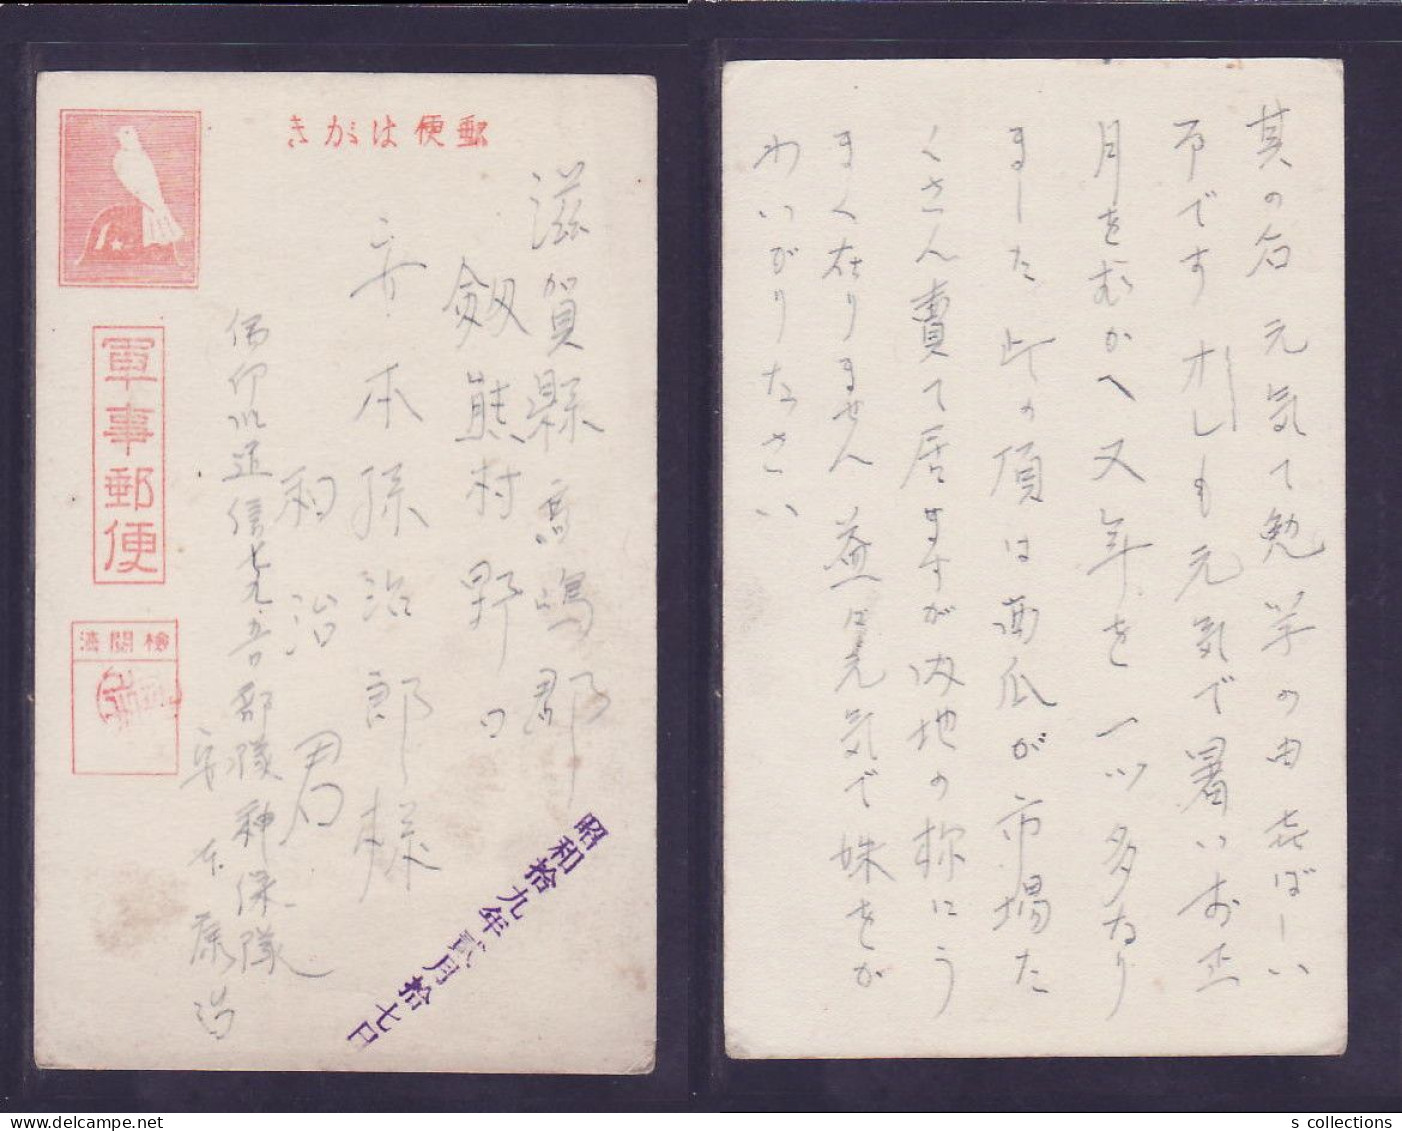 郵便はがき
軍事郵便
検閲済
滋賀縣高嶋郡
劔熊村野口
安本孫治郎様
和治君
信七九五部隊神保隊
安本康治
昭和拾九年弐月拾七日
其の后元気て勉学の由喜ばしい
オレも元気で暑いお正
月をむかへ又年を一ツ多なり
ました此の頂は西瓜が市場た
くさん賣て居ますが内地の様にう
まく在りません益々元気で妹をか
わいがりなさい
s collections